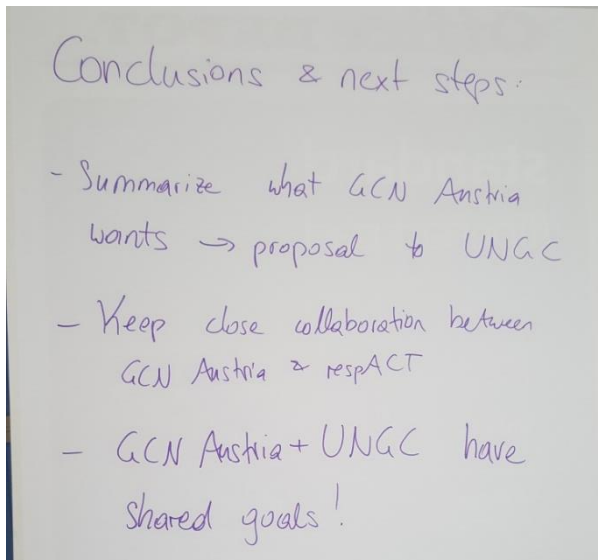 Conclusions & next steps:
- Summarize what GCN Austria
wants → proposal to UNGC
- Keep close collaboration between
GCN Austria & respACT
- GCN Austria + UNGC have
shared goals!